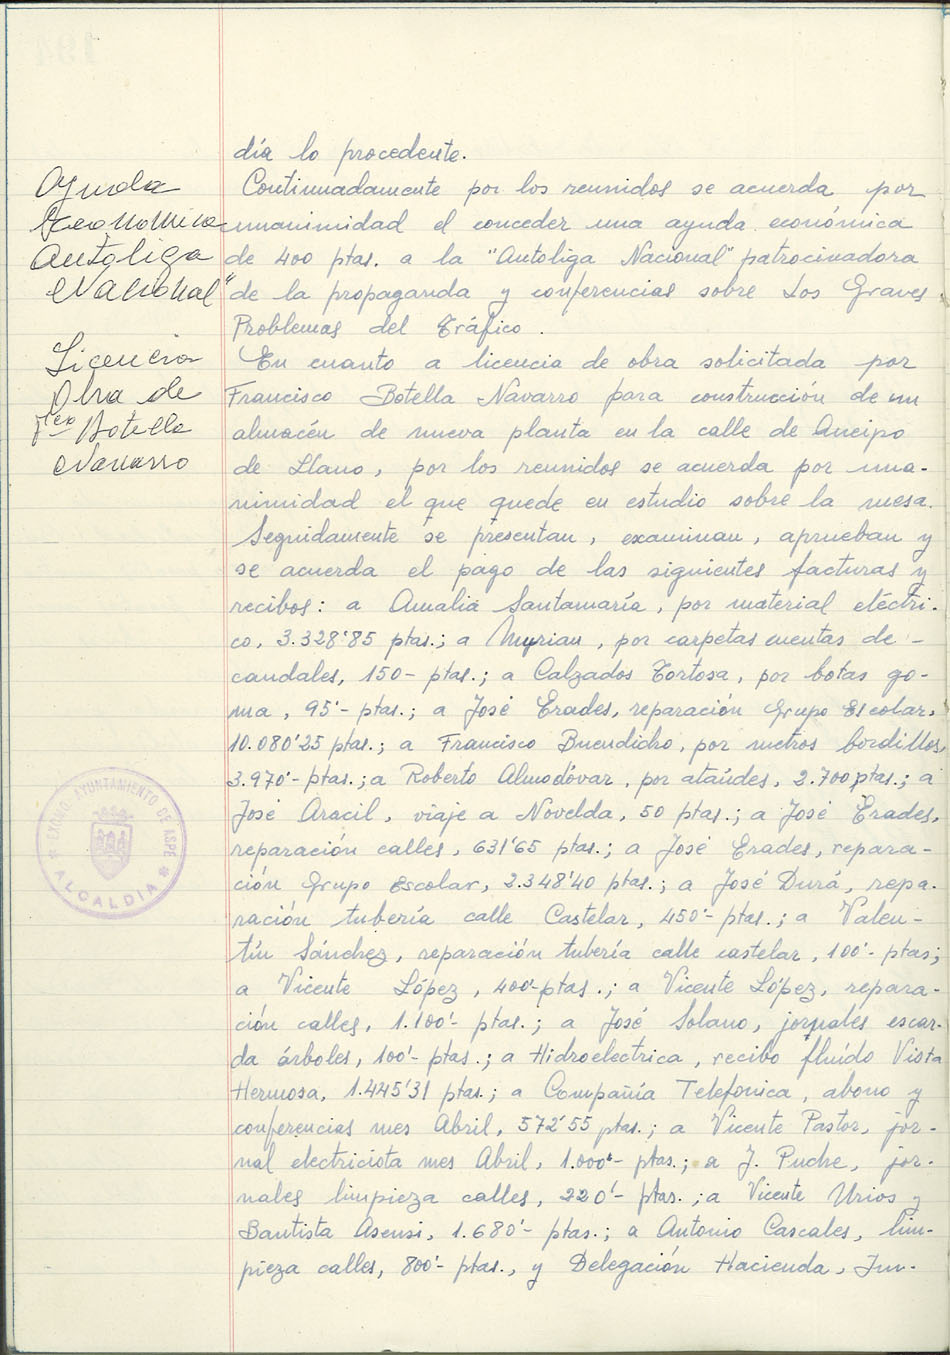 día lo procedente.
Ayuda
Economica
Autoliga
Nacional"
Continuadamente por los reunidos se acuerda por
unanimidad el conceder una ayuda económica
de 400 ptas. a la "Autoliga Nacional" patrocinadora
de la propaganda y conferencias sobre Los Graves
Problemas del Tráfico.
Licencia
Obra de
Fco Botella
Navarro
En cuanto a licencia de obra solicitada por
Francisco Botella Navarro para construcción de un
almacén de nueva planta en la calle de Queipo
de Llano, por los reunidos se acuerda por una-
nimidad el que quede en estudio sobre la mesa.
Seguidamente se presentan, examinan, aprueban y
se acuerda el pago de las siguientes facturas y
recibos: a Amalia Santamaría, por material eléctri-
co, 3.328'85 ptas.; a Myrian, por carpetas cuentas de -
caudales, 150- ptas.; a Calzados Tortosa, por botas go-
ma, 95'- ptas.; a José Erades, reparación Grupo Escolar,
10.080'25 ptas.; a Francisco Buendicho, por metros bordillos,
3.970'- ptas.; a Roberto Almodóvar, por ataúdes, 2.700 ptas.; a
José Aracil, viaje a Novelda, 50 ptas.; a José Erades,
reparación calles, 631'65 ptas.; a José Erades, repara-
ción Grupo Escolar, 2.348'40 ptas.; a José Durá, repa-
ración tubería calle Castelar, 450'- ptas.; a Valen-
tín Sánchez, reparación tubería calle castelar, 100'- ptas;
a Vicente López, 400'- ptas.; a Vicente López, repara-
ción calles, 1.100'- ptas.; a José Solano, jornales escar-
da árboles, 100'- ptas.; a Hidroelectrica, recibo fluído Vista
Hermosa, 1.445'31 ptas.; a Compañía Telefonica, abono y
conferencias mes Abril, 572'55 ptas.; a Vicente Pastor, jor-
nal electricista mes Abril, 1.000'- ptas.; a J. Puche, jor-
nales limpieza calles, 220'- ptas.; a Vicente Urios y
Bautista Asensi, 1.680'- ptas.; a Antonio Cascales, lim-
pieza calles, 800'- ptas., y Delegación Hacienda, Jun-
EXCMO. AYUNTAMIENTO DE ASPE
* ALCALDIA *